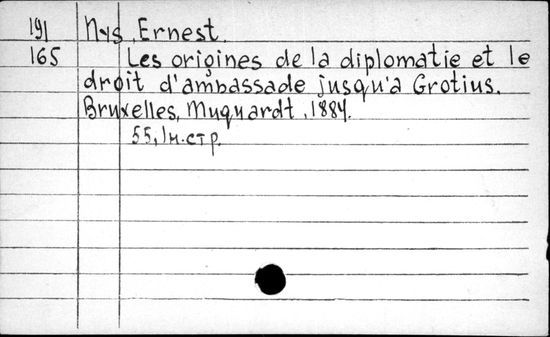 191 Nys, Ernest.
165 Les origines de la diplomatie et le
droit d'ambassade jusqu'a Grotius.
Bruxelles, Muquardt, 1884.
55, 1 н. стр.